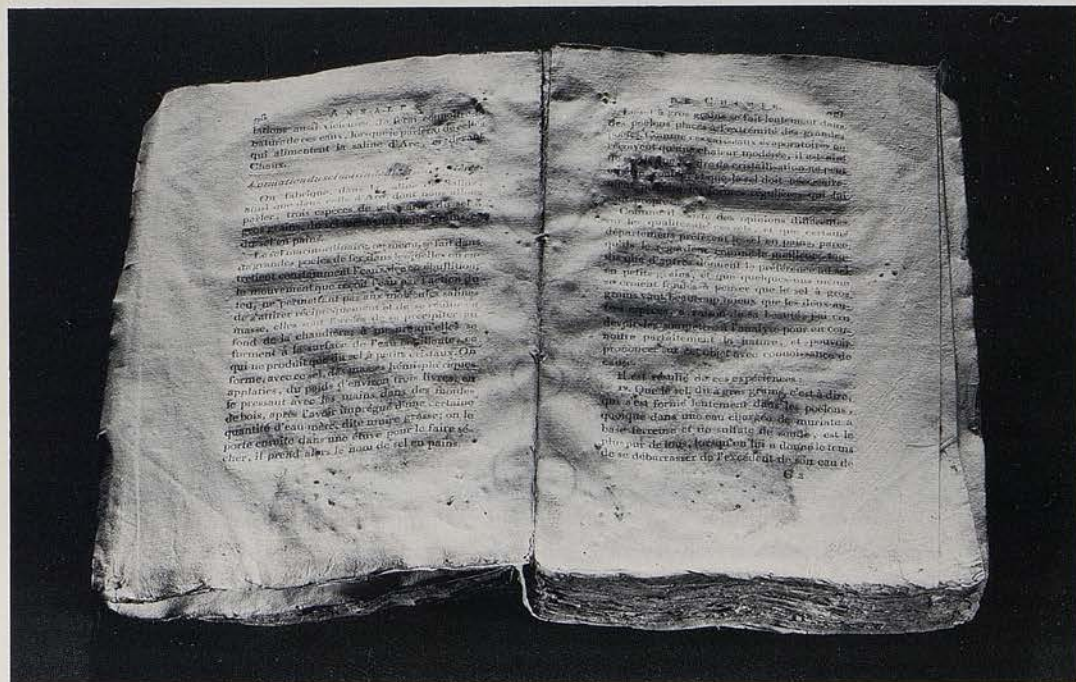 98 ANNALES
tations aussi vicieuses. Je ferai connoître la
nature de ces eaux, lorsque je parlerai de celles
qui alimentent la saline d'Arc, et de la
Chaux.
Formation du sel
On fabrique dans la saline de Salins,
ainsi que dans celle d'Arc dont nous allons
parler, trois especes de sel, du sel à
gros grains, du sel à petits grains, et
du sel en pains.
Le sel marin ordinaire, ou menu, se fait dans
de grandes poêles de fer, dans lesquelles on en-
tretient constamment l'eau en ébullition,
le mouvement que reçoit l'eau par l'action du
feu, ne permettant pas aux molécules salines
de s'attirer réciproquement et de se réunir en
masse, elles sont forcées de se précipiter au
fond de la chaudière, à mesure qu'elles se
forment à la surface de l'eau bouillante, ce
qui ne produit que du sel à petits cristaux. On
forme, avec ce sel, des masses hémisphériques
applaties, du poids d'environ trois livres, en
le pressant avec les mains dans des moules
de bois, après l'avoir imprégné d'une certaine
quantité d'eau mère, dite muire grasse; on le
porte ensuite dans une étuve pour le faire sé-
cher, il prend alors le nom de sel en pains.
DE CHIMIE. 99
Le sel à gros grains se fait lentement dans
des poêlons placés à l'extrémité des grandes
poêles. Comme ces vaisseaux évaporatoires ne
reçoivent qu'une chaleur modérée, il est aisé
de que l'ordre de cristallisation ne peut
être que le sel doit nécessaire-
ment régulières qui lui
propres.
Comme il existe des opinions différentes
sur les qualités de ces sels, et que certains
départemens préfèrent le sel en pains, parce
qu'ils le regardent comme le meilleur, tan-
dis que d'autres donnent la préférence au sel
en petits grains, et que quelques-uns même
se croient fondés à penser que le sel à gros
grains vaut beaucoup mieux que les deux au-
tres espèces, à raison de sa beauté, j'ai cru
devoir les soumettre à l'analyse pour en con-
noître parfaitement la nature, et pouvoir
prononcer sur cet objet avec connoissance de
cause.
Il est résulté de ces expériences:
1°. Que le sel, dit à gros grains, c'est-à-dire,
qui s'est formé lentement dans les poêlons,
quoique dans une eau chargée de muriate à
base terreuse et de sulfate de soude, est le
plus pur de tous, lorsqu'on lui a donné le tems
de se débarrasser de l'excédent de son eau de
G 2